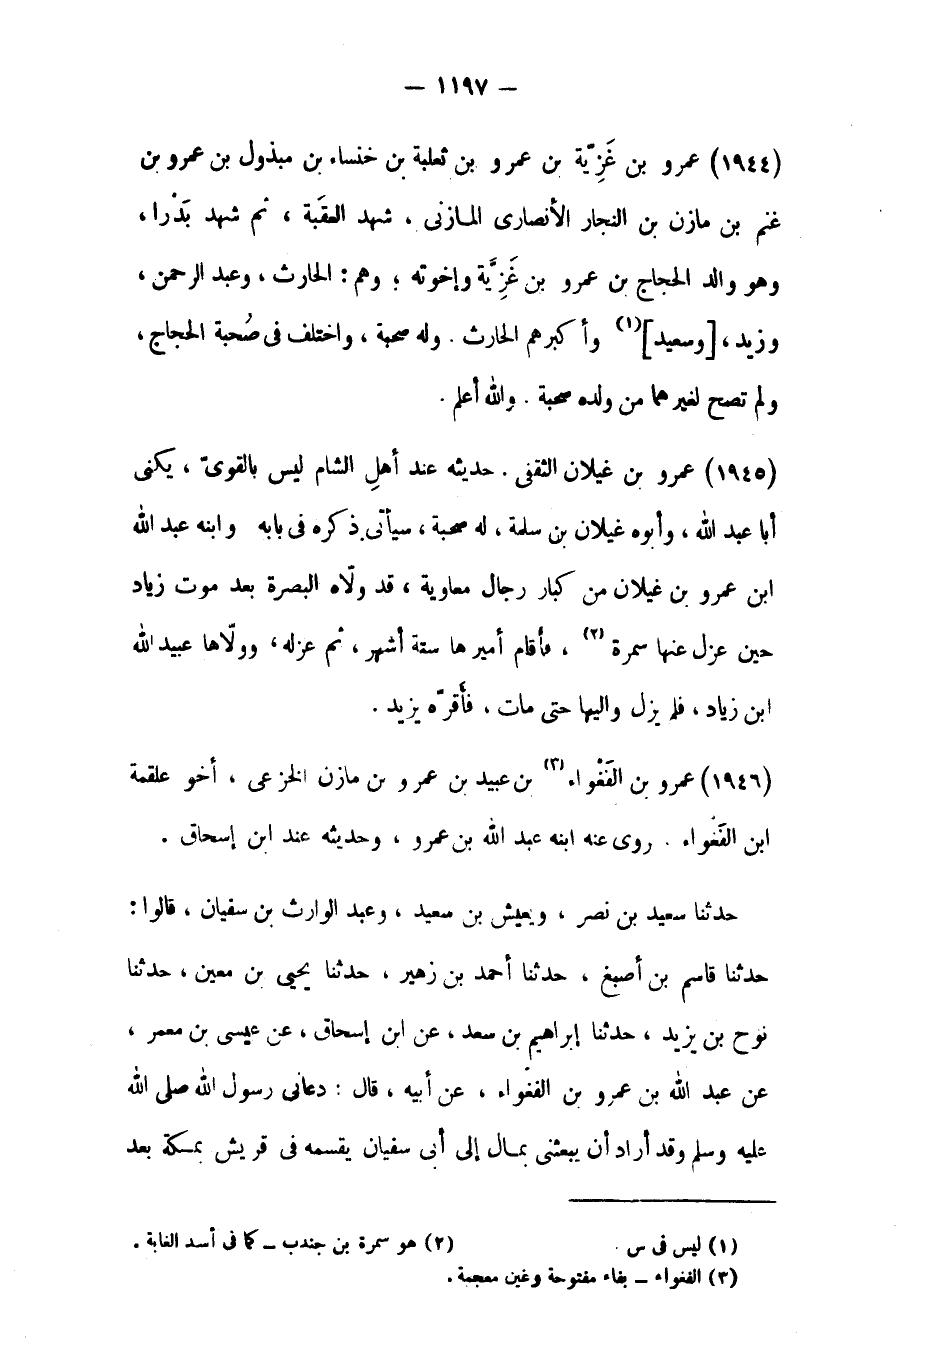 — ١١٩٧ —
(١٩٤٤) عمرو بن غَزِيّة بن عمرو بن ثعلبة بن خنساء بن مبذول بن عمرو بن
غنم بن مازن بن النجار الأنصارى المازنى . شهد العقَبة ، ثم شهد بَدْرا ،
وهو والد الحجاج بن عمرو بن غَزِيَّة وإخوته ؛ وهم : الحارث ، وعبد الرحمن ،
وزيد ، [وسعيد] (١) وأكبرهم الحارث . وله صحبة ، واختلف فى صُحبة الحجاج ،
ولم تصح لغيرهما من ولده صحبة . والله أعلم .
(١٩٤٥) عمرو بن غيلان الثقفى . حديثه عند أهلِ الشام ليس بالقوىّ ، يكنى
أبا عبد الله ، وأبوه غيلان بن سلمة ، له صحبة ، سيأتى ذكره فى بابه وابنه عبد الله
ابن عمرو بن غيلان من كبار رجال معاوية ، قد ولّاه البصرة بعد موت زياد
حين عزل عنها سمرة (٢) ، فأقام أميرها ستة أشهر ، ثم عزله ، وولّاها عبيد الله
ابن زياد ، فلم يزل واليها حتى مات ، فأَقرّه يزيد .
(١٩٤٦) عمرو بن الفَغْواء (٣) بن عبيد بن عمرو بن مازن الخزعى ، أخو علقمة
ابن الفَغْواء . روى عنه ابنه عبد الله بن عمرو ، وحديثه عند ابن إسحاق .
حدثنا سعيد بن نصر ، ويعيش بن سعيد ، وعبد الوارث بن سفيان ، قالوا :
حدثنا قاسم بن أصبغ ، حدثنا أحمد بن زهير ، حدثنا يحيى بن معين ، حدثنا
نوح بن يزيد ، حدثنا إبراهيم بن سعد ، عن ابن إسحاق ، عن عيسى بن معمر ،
عن عبد الله بن عمرو بن الفغواء ، عن أبيه ، قال : دعانى رسول الله صلى الله
عليه وسلم وقد أراد أن يبعثنى بمال إلى أبى سفيان يقسمه فى قريش بمكة بعد
(١) ليس فى س . (٢) هو سمرة بن جندب ــ كما فى أسد الغابة .
(٣) الفغواء ــ بفاء مفتوحة وغين معجمة .